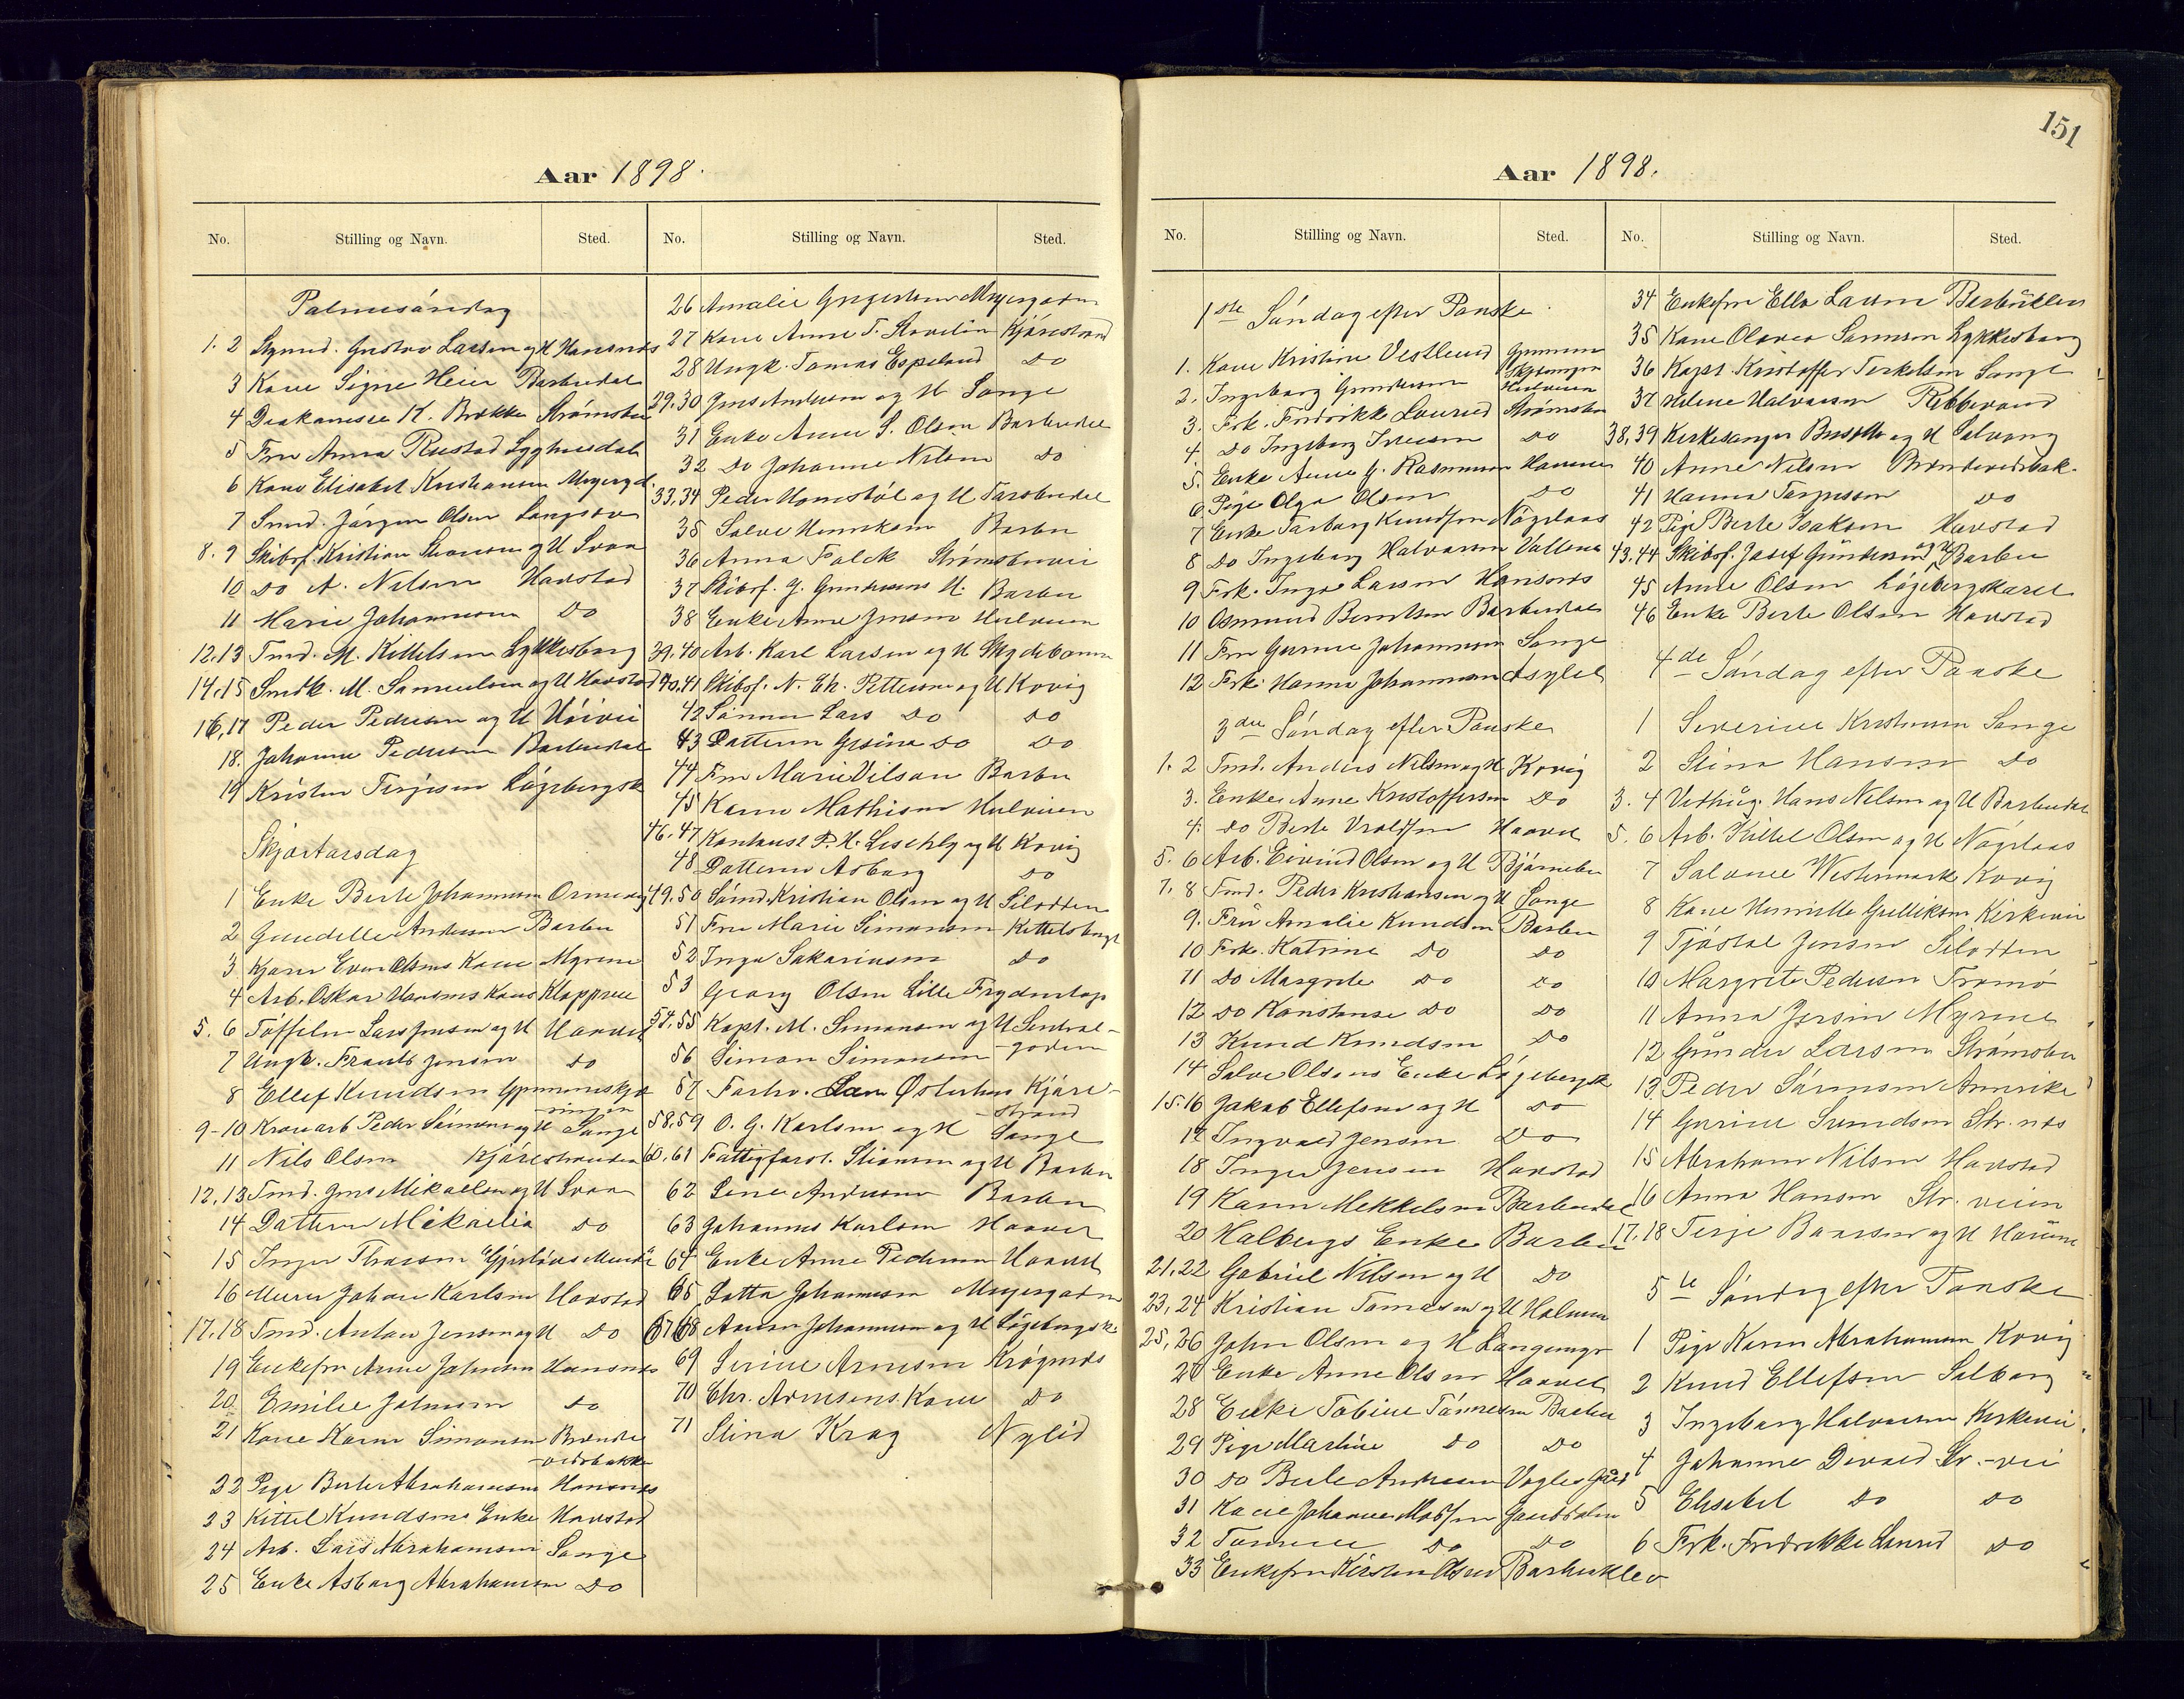 Aar 1898.
No. Stilling og Navn. Sted. No. Stilling og Navn. Sted.
Palmesøndag
1. 2 Styrmd. Gustav Larsen og H Hansnæs
3 Kone Signe Heier Barbudal
4 Diakonisse K. Brekke Strømsbu
5 Fru Anna Rustad Lyghusdal
6 Kone Elisabet Kristiansen Myrerg
7 Smed. Jørgen Olsen Langsæv
8. 9 Skibsf. Kristian Simonsen og H Svaa
10 Do A. Nilsen Havstad
11 Marie Johannesen Do
12.13 Tmd. M. Kittelsen Lykkesborg
14.15 Smdk. M. Samuelsen og H Havstad
16,17 Peder Pedersen og H Höivei
18. Johanne Pedersen Barbudal
19 Kristen Terjesen Lögebergsk
Skjærtorsdag
1 Enke Berte Johannesen
2 Gundelle Andersen Barbu
3 Even Olsens Kone Myrene
4 Arb. Oskar Hansens Kone Klappene
5. 6 Tøffelm Lars Jensen og H Haavet
7 Ungk. Frants Jensen do
8 Ellef Knudsen
9-10 Peder Simonsen og H Songe
11 Nils Olsen Kjørestranden
12.13 Tmd. Jens Mikaelsen og H Svaa
14 Datteren Mikaelia do
15 Inger
16 Murer Johan Karlsen Havstad
17.18 Tmd. Anton Jensen og H Do
19 Enkefru Anne Johnsen Hansnæs
20 Emilie Johnsen do
21 Kone Karen Simonsen Brænde-
vidsbakke
22 Pige Berte Abrahamsen Hansnæs
23 Kittel Knudsens Enke Havstad
24 Arb. Lars Abrahamsen Songe
25 Enke Asborg Abrahamsen Do
26 Amalie Gregersen Myrergaden
27 Kone Anne T. Kjørestrand
28 Ungk. Tomas Espeland Do
29.30 Jens Andersen og H Songe
31 Enke Anne S. Olsen Barbudal
32 Do Johanne Nilsen Do
33,34 Peder Homstøl og H Barbudal
35 Salve Henriksen Barbu
36 Anna Falck Strømsbuvei
37 Skibsf. G. Gundersens H. Barbu
38 Enke Anne Jensen Hulveien
39.40 Arb. Karl Larsen og H
40.41 Skibsf. N. Ch. Pettersen og H Kovig
42 Sønnen Lars Do do
43 Datteren Gesina Do Do
44 Fru Marie Vilson Barbu
45 Karen Mathisen Hulveien
46.47 P. H. og H Kovig
48 Datteren Asborg do
49.50 Sømd. Kristian Olsen og H Silodden
51 Fru Marie Simonsen Kittelsbugt
52 Inga Sakariasen do
53 Georg Olsen Lille Frydenlops
54.55 Kapt. M. Simonsen og H Sentral-
56 Simon Simonsen -gaden
57 Forhv. Østerhus Kjøre-
-strand
58.59 O. G. Karlsen og H Songe
60.61 Fattigforst. Simonsen og H Barbu
62 Lene Andersen Barbu
63 Johannes Karlsen Haavet
64 Enke Anne Pedersen Haavet
65 Lotta Johannesen Myrergaden
67.68 Johannesen og H Lögebergsk
69 Serine Arnesen Krøgenæs
70 Chr. Arnesens Kone Do
71 Stina Krag Nylid
151
Aar 1898.
No. Stilling og Navn. Sted. No. Stilling og Navn. Sted.
1ste Søndag efter Paaske
1. Kone Kristine Vestlund
2. Ingeborg Gundersen Hulveien
3. Frk. Fredrikke Laurud Strømsbu
4. Do Ingeborg Iversen Do
5. Enke Anne G. Rasmussen
6 Pige Olga Olsen Do
7 Enke Tarborg Knudsen Nøgelaas
8 Do Ingeborg Halvorsen Vollene
9 Frk. Inga Larsen Hansnæs
10 Osmund Berntsen Barbudal
11 Fru Gurine Johannesen Songe
12 Frk. Hanna Johannesen Asylet
3die Søndag efter Paaske
1. 2 Tmd. Anders Nilsen og H Kovig
3. Enke Anne Kristoffersen Do
4. Do Berte Haavet
5. 6 Arb. Eivind Olsen og H Bjørnebo
7. 8 Tmd. Peder Kristiansen og H Songe
9. Frü Amalie Knudsen Barbu
10 Frk. Katrine Do Do
11 Do Margrete Do Do
12 Do Konstanse Do Do
13 Knud Knudsen Do
14 Salve Olsens Enke Lögebergsk
15.16 Jakob Ellefsen og H Do
17 Ingvald Jensen Do
18 Inger Jensen Havstad
19 Karen Mikkelsen Barbudal
20 Halbergs Enke Barbu
21.22 Gabriel Nilsen og H Do
23.24 Kristian Tomasen og H Holmen
25.26 John Olsen og H Langemyr
27 Enke Anne Olsen Haavet
28 Enke Tobine Tønnesen Barbu
29 Pige Martine Do Do
30 Do Berte Andersen Vogles Gård
31 Kone Johanne
32 Do Do
33 Enkefru Kirsten Olsen Barbuklev
34 Enkefru Ella Larsen Barbuklev
35 Kone Olava Sørensen Lykkesborg
36 Kapt. Kristoffer Terkelsen Songe
37 Helene Halvorsen Rebbevand
38.39 Kirkesanger og H Solvang
40 Anne Nilsen Brændevidsbak.
41 Hanna Torjussen do
42 Pige Berte Isaksen Havstad
43.44 Skibsf. Josef Gundersen og H Barbu
45 Anne Olsen Lögebergskaret
46 Enke Berte Olsen Havstad
4de Søndag efter Paaske
1 Severine Kristensen Songe
2 Stina Hansen do
3. 4 Hans Nilsen og H Barbudal
5. 6 Arb. Kittel Olsen og H Nøgelaas
7 Salvine Westermark Kovig
8 Kone Henriette Gulliksen Kirkevei
9 Tjøstol Jensen Silodden
10 Margrete Pedersen Tromø
11 Anna Jensen Myrene
12 Gunder Larsen Strømsbu
13 Peder Sørensen Amerika
14 Gurine Svendsen Str. næs
15 Abraham Nilsen Havstad
16 Anna Hansen Str. veien
17.18 Terje Baarsen og H
5te Søndag efter Paaske
1 Pige Karen Abrahamsen Kovig
2 Knud Ellefsen Solborg
3 Ingeborg Halvorsen Kirkevei
4 Johanne Devold Str.-vei
5 Elisabet Do do
6 Frk. Fredrikke Laurud do